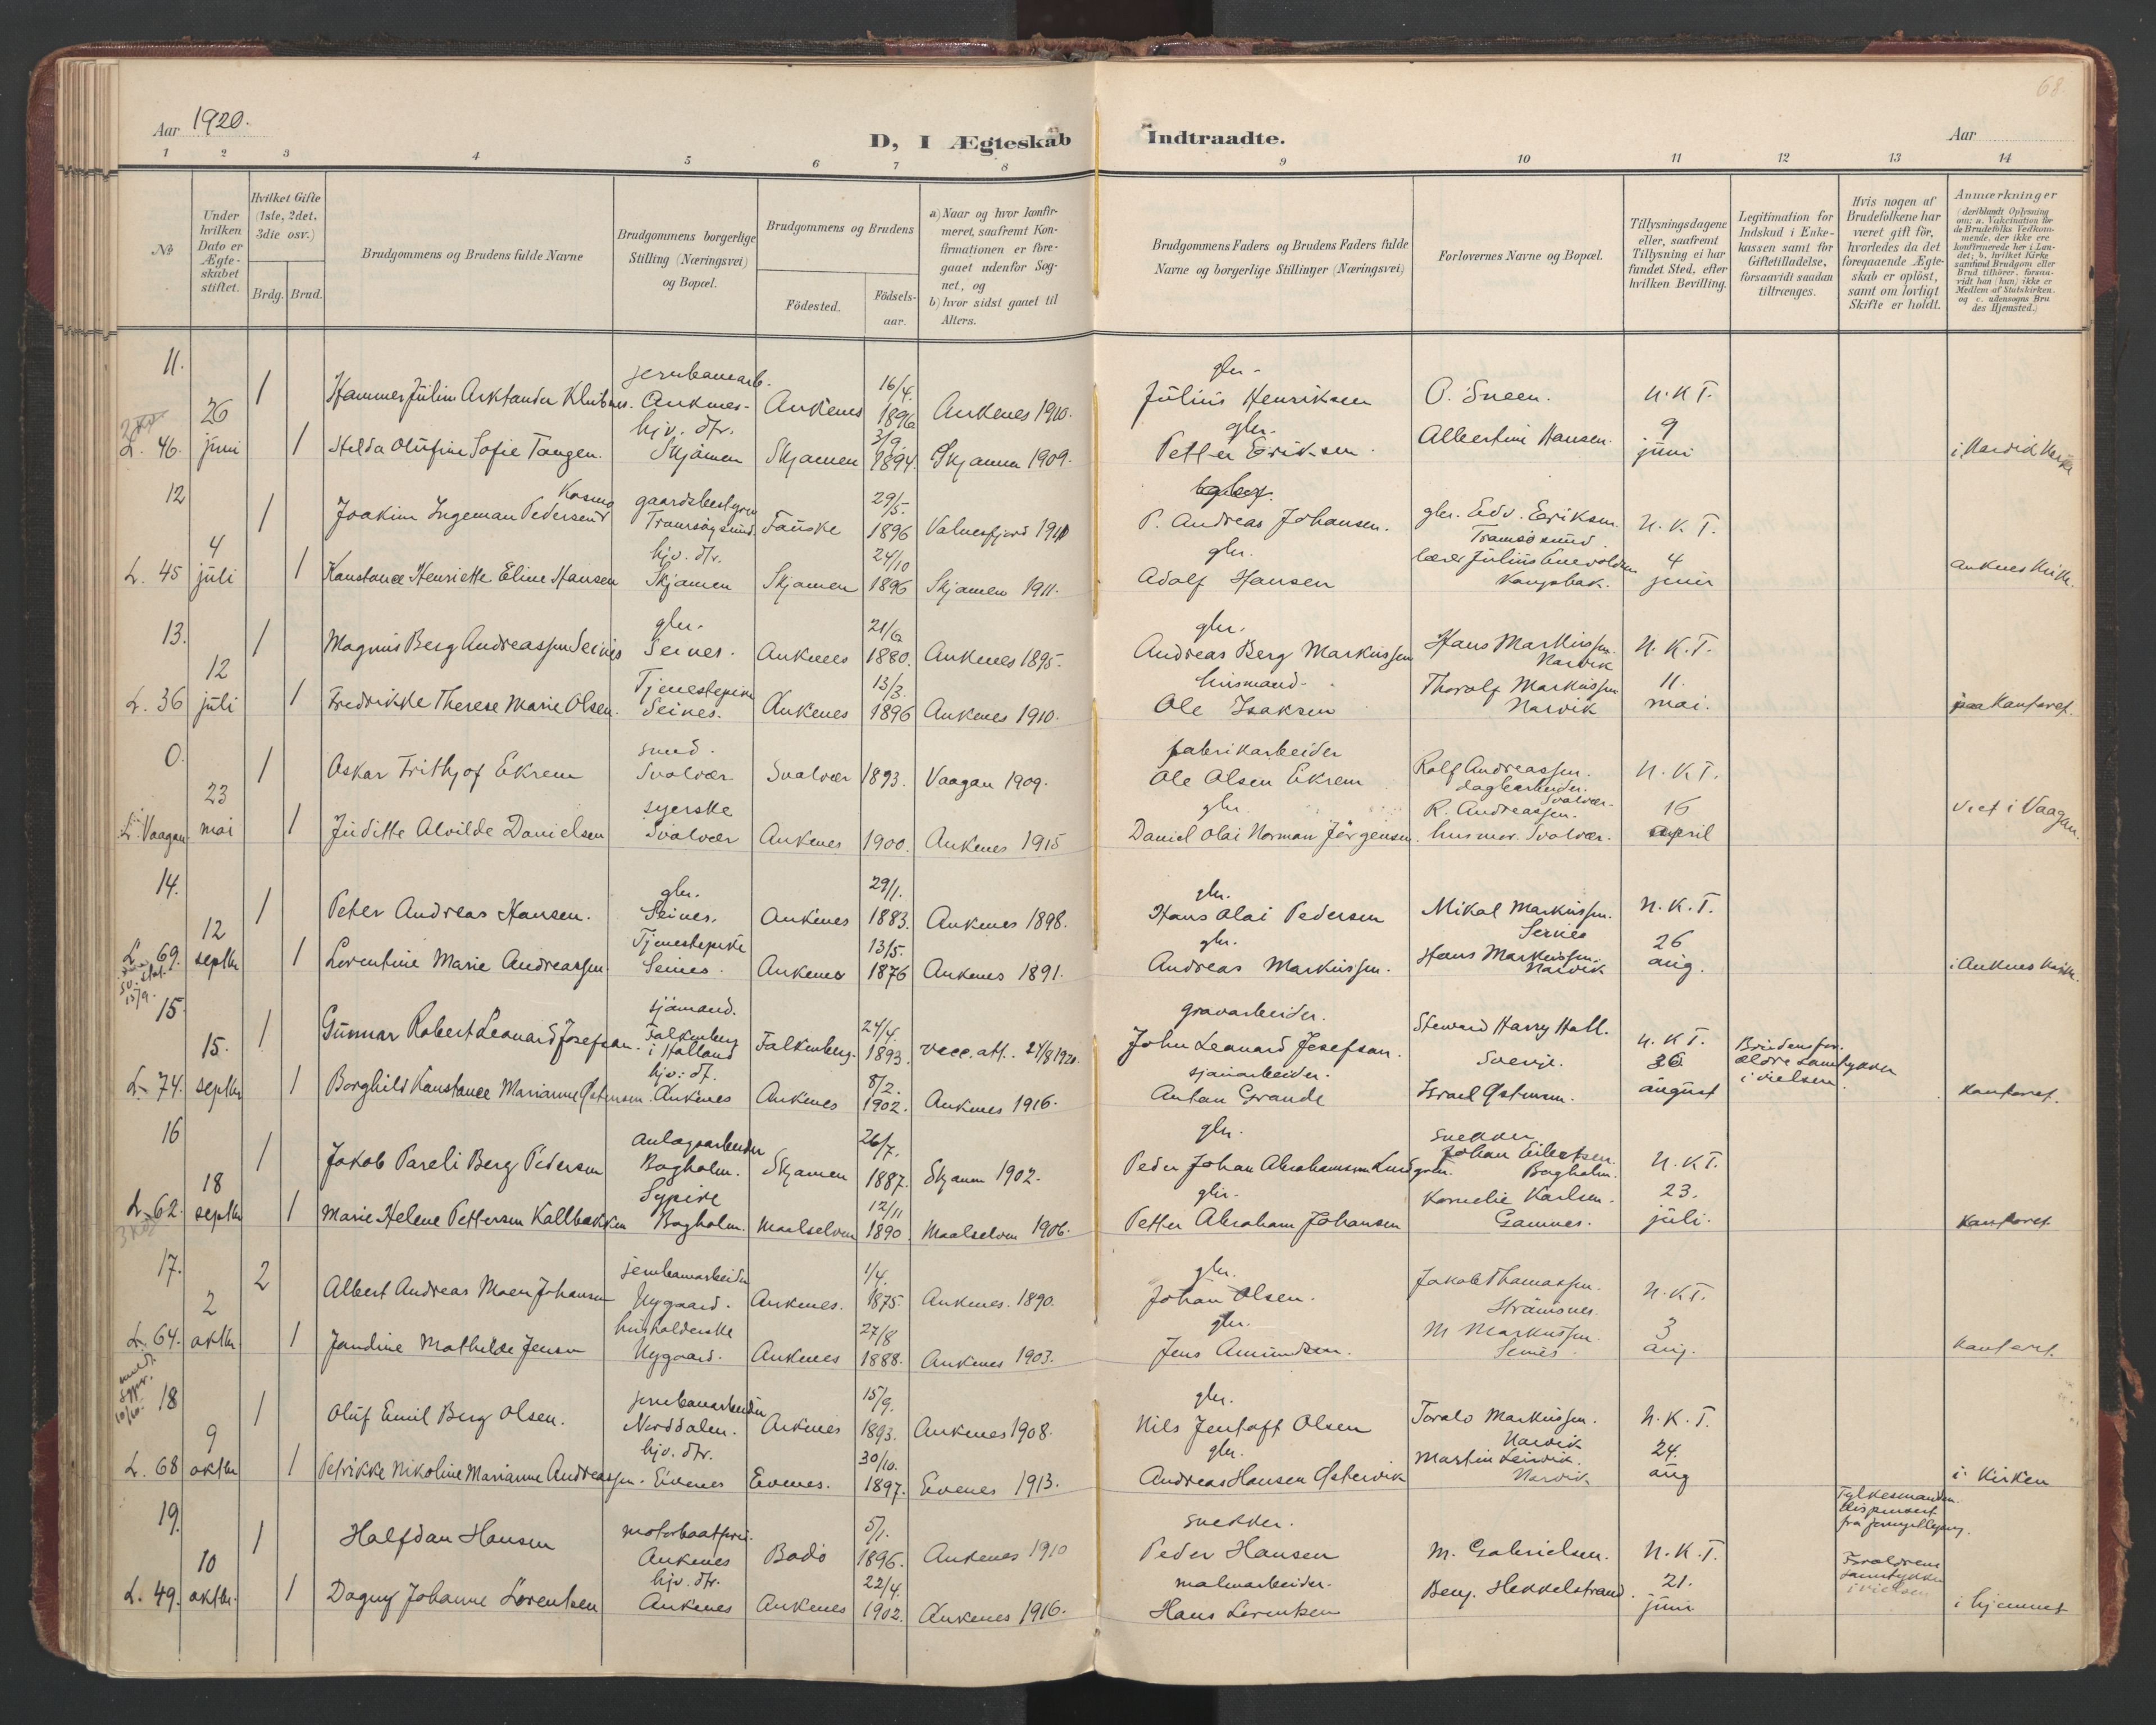 Aar 1920.
D, I Ægteskab Indtraadte.
Aar
68
1 2 3 4 5 6 7 8 9 10 11 12 13 14
№
Under hvilken Dato er Ægte-skabet stiftet.
Hvilket Gifte (1ste, 2det, 3die osv.)
Brdg. Brud.
Brudgommens og Brudens fulde Navne
Brudgommens borgerlige Stilling (Næringsvei) og Bopæl.
Brudgommens og Brudens
Födested.
Födsels-aar.
a) Naar og hvor konfir-
meret, saafremt Kon-
firmationen er fore-
gaaet udenfor Sog-
net, og
b) hvor sidst gaaet til
Alters.
Brudgommens Faders og Brudens Faders fulde
Navne og borgerlige Stillinger (Næringsvei)
Forlovernes Navne og Bopæl.
Tillysningsdagene
eller, saafremt
Tillysning ei har
fundet Sted, efter
hvilken Bevilling.
Legitimation for
Indskud i Enke-
kassen samt for
Giftetilladelse,
forsaavidt saadan
tiltrænges.
Hvis nogen af
Brudefolkene har
været gift för,
hvorledes da det
foregaaende Ægte-
skab er oplöst,
samt om lovligt
Skifte er holdt.
Anmærkninger
(deriblandt Oplysning
om: a. Vakcination for
de Brudefolks Vedkom-
mende, der ikke ere
konfirmerede her i Lan-
det; b. hvilket Kirke
samfund Brudgom eller
Brud tilhörer, forsaa-
vidt han (hun) ikke er
Medlem af Statskirken.
og c. udensogns Bru
des Hjemsted.)
11. 1 jernbanearb. Ankenes 16/4. 1896 Ankenes 1910. gbr. Julius Henriksen O. Sneen. U.K.T.
L. 46. 26 juni 1 Helda Olufine Sofie Tangen. hjv. dtr. Skjomen Skjomen 3/9. 1894. Skjomen 1909. gbr. Petter Eriksen. Albertine Hansen. 9 juni
12 1 Joakim Ingeman Pedersen Fauske 29/5. 1896 P. Andreas Johansen. gbr. Edv. Eriksen. U.K.T.
L. 45 4 juli 1 Konstance Henriette Eline Hansen hjv. dtr. Skjomen Skjomen 24/10 1896 Skjomen 1911. gbr. Adolf Hansen 4 juni Ankenes Kirke.
13. 1 Magnus Berg Andreassen Seines gbr. Seines. Ankenes 21/6 1880. Ankenes 1895. gbr. Andreas Berg Markussen Hans Markussen. Narvik U.K.T.
L. 36 12 juli 1 Fredrikke Therese Marie Olsen. Tjenestepike Seines. Ankenes 13/3. 1896 Ankenes 1910. husmand. Ole Isaksen Thoralf Markussen Narvik 11. mai. paa Kontoret.
0. 1 Oskar Frithjof Ekrem smed. Svolvær Svolvær 1893. Vaagan 1909. fabrikarbeider Ole Olsen Ekrem Rolf Andreassen. dagarbeider. Svolvær. U.K.T.
L. Vaagan 23 mai 1 Juditte Alvilde Danielsen syerske Svolvær Ankenes 1900. Ankenes 1915 gbr. Daniel Olai Norman Jörgensen. R. Andreassen. husmor. Svolvær. 16 april viet i Vaagan.
14. 1 Peter Andreas Hansen. gbr. Seines. Ankenes 29/1. 1883. Ankenes 1898. gbr. Hans Olai Pedersen Mikal Markussen. Seines U.K.T.
L 69. 12 septbr 1 Lorentine Marie Andreassen Tjenestepike Seines. Ankenes 13/5. 1876 Ankenes 1891. gbr. Andreas Markussen. Hans Markussen. Narvik 26 aug. i Ankenes Kirke.
15. 1 Gunnar Robert Leonard Josefson. sjömand. Falkenberg i Halland Falkenberg. 24/4. 1893. vacc. att. 24/8 1920. gravarbeider. John Leonard Josefsan. Steward Harry Hall. Sverje. U.K.T.
L. 74. 15. septbr 1 Borghild Konstance Marianne Östensen. hjv: dt. Ankenes Ankenes 8/2. 1902. Ankenes 1916. sjauarbeider. Anton Grande Israel Östensen. 26 august Brudens for-ældre samtykker i vielsen. Kontoret.
16 1 Jakob Pareli Berg Pedersen anlægsarbeider Bogholm. Skjomen 26/7. 1887. Skjomen 1902. gbr. Peder Johan Abrahamsen Lundgren. snekker Johan Eilertsen. Bogholm. U.K.T.
L. 62. 18 septbr 1 Marie Helene Pettersen Kallbakken Sypike Bogholm. Maalselven 12/11 1890. Maalselven 1906. gbr. Petter Abraham Johansen Kornelie Karlsen. 23. juli. Kontoret.
17. 2 Albert Andreas Moen Johansen jernbanearbeider Nygaard. Ankenes. 1/4. 1875. Ankenes. 1890. gbr. Johan Olsen. Jakob Thomassen. Strömsnes. U.K.T.
L. 64. 2 oktbr 1 Jendine Mathilde Jensen husholderske Nygaard. Ankenes 27/8 1888. Ankenes 1903. gbr. Jens Amundsen. M Markussen. Seines. 3 aug. Kontoret.
18 1 Oluf Emil Berg Olsen. jernbanearbeider Norddalen. Ankenes 15/9. 1893. Ankenes 1908. gbr. Nils Jentoft Olsen Toralv Markussen. Narvik U.K.T.
L. 68 9 oktbr 1 Petrikke Nikoline Marianne Andreassen. hjv. dtr. Evenes Evenes. 30/10. 1897. Evenes 1913. gbr. Andreas Hansen Östervik Martin Leirvik. Narvik. 24. aug i Kirken
19. 1 Halfdan Hansen Ankenes Bodö 5/1. 1896. Ankenes 1910 snekker. Peder Hansen M. Gabrielsen. U.K.T. Fylkesmanden dispensert
L. 49. 10 oktbr. 1 Dagny Johanne Lorentsen hjv. dtr. Ankenes Ankenes 22/4. 1902. Ankenes 1916. malmarbeider. Hans Lorentsen Benj. Hekkelstrand. 21. juni Forældrenes samtykke i vielsen i hjemmet